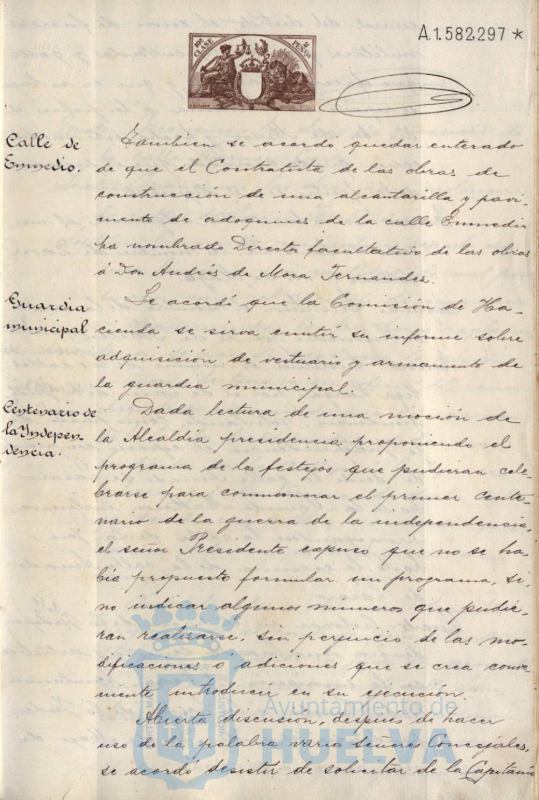 A1.582297*
10ª CLASE
2 PESETAS
Calle de
Enmedio.
Tambien se acordó quedar enterado
de que el Contratista de las obras de
construcción de una alcantarilla y pavi-
mento de adoquines de la calle Enmedio
ha nombrado Director facultativo de las obras
á Don Andrés de Mora Fernandez.
Guardia
municipal
Se acordó que la Comisión de Ha-
cienda se sirva emitir su informe sobre
adquisición de vestuario y armamento de
la guardia municipal.
Centenario de
la Indepen-
dencia.
Dada lectura de una moción de
la Alcaldía presidencia proponiendo el
programa de los festejos que pudieran cele-
brarse para conmemorar el primer cente-
nario de la guerra de la independencia,
el señor Presidente expuso que no se ha-
bía propuesto formular un programa, si-
no indicar algunos números que pudie-
ran realizarse, sin perjuicio de las mo-
dificaciones ó adiciones que se crea conve-
niente introducir en su ejecución.
Abierta discusion, despues de hacer
uso de la palabra varios Señores Concejales,
se acordó desistir de solicitar de la Capitanía
Ayuntamiento de
HUELVA